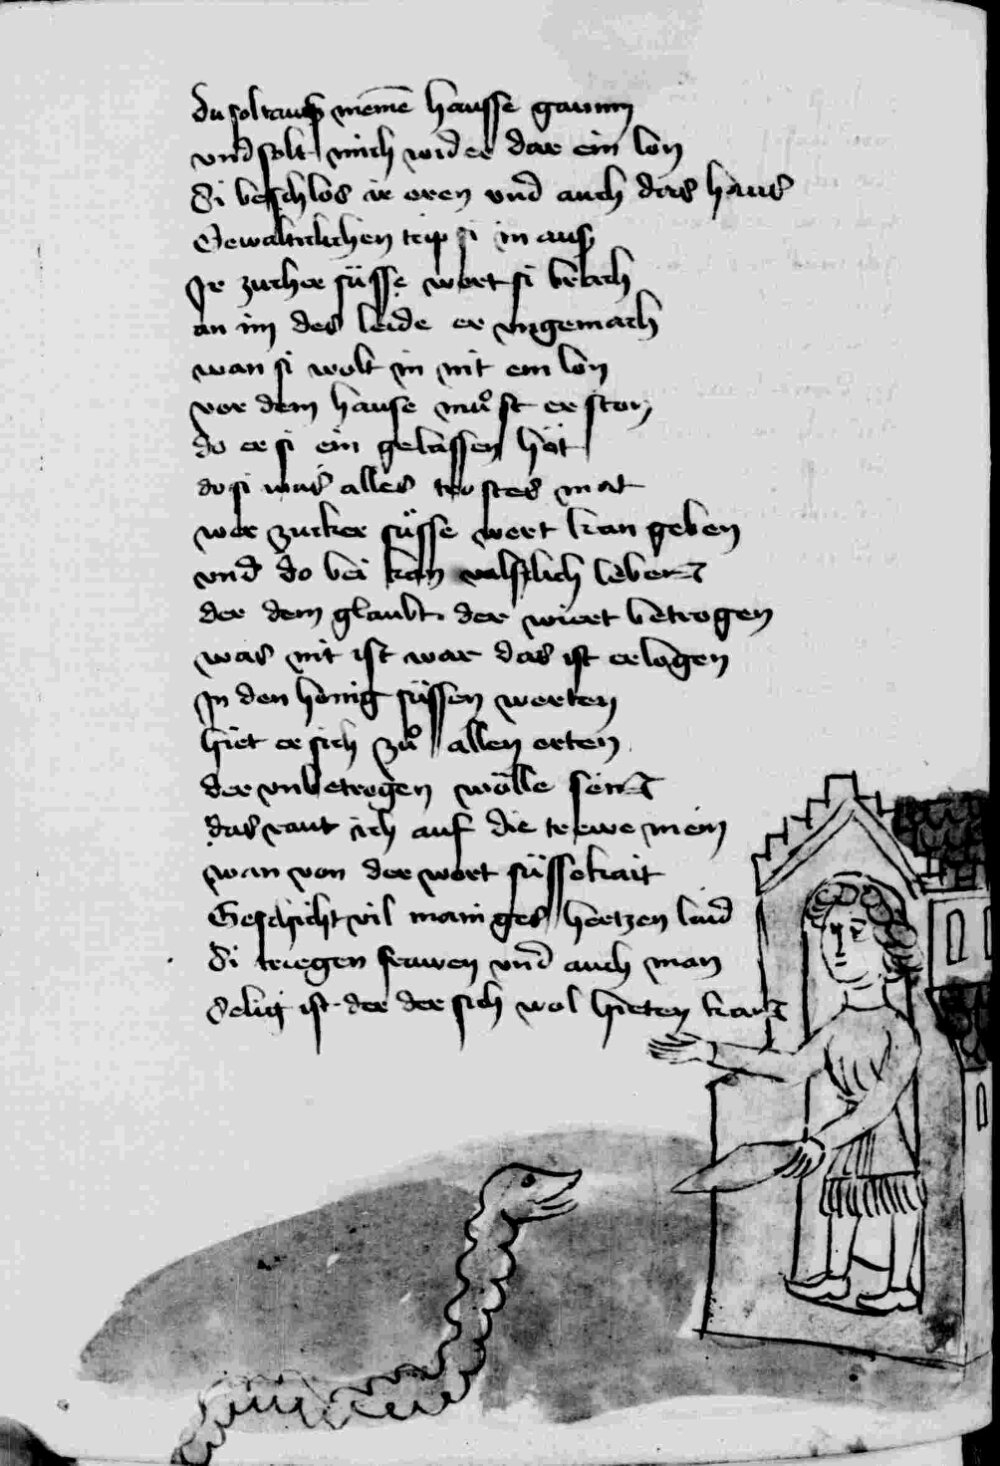 du solt aus meinē hausse gaunn
vnd solt mich wider dar ein lon
Si beschlos ir oren vnd auch das haus
Gewaltichlichen treip si in aus
Ir zucker süsse wort si brach
an im des leide er vngemach
wan si wolt in nit ein lon
vor dem hause muͦst er ston
do er si ein gelassen hot
do si was alles trostes mat
wer zucker süsse wort kan geben
vnd do bei kan valschlich leben
der dem glaubt der wirt betrogen
was nit ist war das ist erlogen
In den honig süssen worten
hiet er sich zuͦ allen orten
der vnbetrogen wölle sein
das raut ich auf die trewe mein
wan von der wort süssekait
Geschicht vil mainges hertzen laid
Si triegen frawen vnd auch man
Selig ist der der sich wol hieten kan